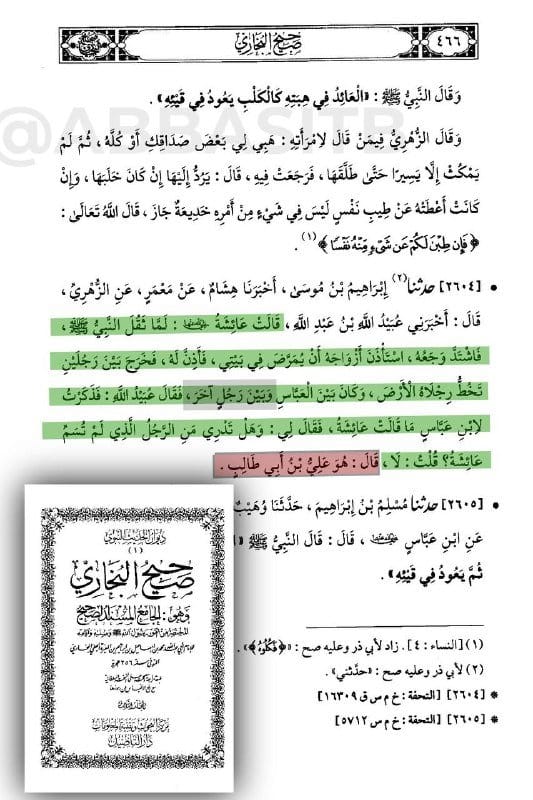 صحيح البخاري
٤٦٦
@ABBASITR
وَقَالَ النَّبِيُّ ﷺ : «الْعَائِدُ فِي هِبَتِهِ كَالْكَلْبِ يَعُودُ فِي قَيْئِهِ» .
وَقَالَ الزُّهْرِيُّ فِيمَنْ قَالَ لِامْرَأَتِهِ : هَبِي لِي بَعْضَ صَدَاقِكِ أَوْ كُلَّهُ ، ثُمَّ لَمْ
يَمْكُثْ إِلَّا يَسِيرًا حَتَّى طَلَّقَهَا ، فَرَجَعَتْ فِيهِ ، قَالَ : يَرُدُّ إِلَيْهَا إِنْ كَانَ خَلَبَهَا ، وَإِنْ
كَانَتْ أَعْطَتْهُ عَنْ طِيبِ نَفْسٍ لَيْسَ فِي شَيْءٍ مِنْ أَمْرِهِ خَدِيعَةٌ جَازَ ، قَالَ اللَّهُ تَعَالَى :
﴿ فَإِن طِبْنَ لَكُمْ عَن شَىْءٍ مِّنْهُ نَفْسًا ﴾(١) .
• [٢٦٠٤] حدثنا(٢) إِبْرَاهِيمُ بْنُ مُوسَى ، أَخْبَرَنَا هِشَامٌ ، عَنْ مَعْمَرٍ ، عَنِ الزُّهْرِيِّ ،
قَالَ : أَخْبَرَنِي عُبَيْدُ اللَّهِ بْنُ عَبْدِ اللَّهِ ، قَالَتْ عَائِشَةُ ﵂ : لَمَّا ثَقُلَ النَّبِيُّ ﷺ ،
فَاشْتَدَّ وَجَعُهُ ، اسْتَأْذَنَ أَزْوَاجَهُ أَنْ يُمَرَّضَ فِي بَيْتِي ، فَأَذِنَّ لَهُ ، فَخَرَجَ بَيْنَ رَجُلَيْنِ
تَخُطُّ رِجْلَاهُ الْأَرْضَ ، وَكَانَ بَيْنَ الْعَبَّاسِ وَبَيْنَ رَجُلٍ آخَرَ ، فَقَالَ عُبَيْدُ اللَّهِ : فَذَكَرْتُ
لِابْنِ عَبَّاسٍ مَا قَالَتْ عَائِشَةُ ، فَقَالَ لِي : وَهَلْ تَدْرِي مَنِ الرَّجُلُ الَّذِي لَمْ تُسَمِّ
عَائِشَةُ؟ قُلْتُ : لَا ، قَالَ : هُوَ عَلِيُّ بْنُ أَبِي طَالِبٍ .
• [٢٦٠٥] حدثنا مُسْلِمُ بْنُ إِبْرَاهِيمَ ، حَدَّثَنَا وُهَيْبٌ
عَنِ ابْنِ عَبَّاسٍ ﵄ ، قَالَ : قَالَ النَّبِيُّ ﷺ
ثُمَّ يَعُودُ فِي قَيْئِهِ» .
(١) [النساء : ٤] . زاد لأبي ذر وعليه صح : «﴿ فَكُلُوهُ ﴾» .
(٢) لأبي ذر وعليه صح : «حدثني» .
* [٢٦٠٤] [التحفة : خ م س ق ١٦٣٠٩]
* [٢٦٠٥] [التحفة : خ م س ٥٧١٢]
ديوان الحديث النبوي
(١)
صحيح البخاري
وَهُوَ : الجامع المسند الصحيح
دار التأصيل